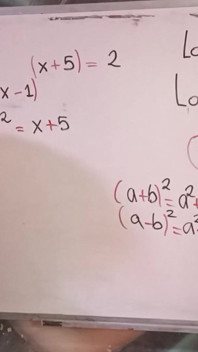 (x+5) = 2
x-1)
2 = x+5
Lo
Lo
(a+b)² = a²+
(a-b)² = a²